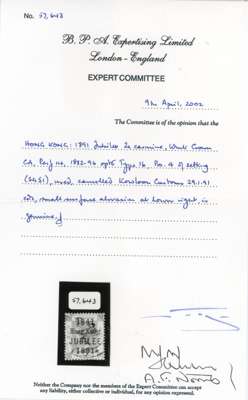 No. 57,643
B. P. A. Expertising Limited
London - England
EXPERT COMMITTEE
9th April, 2002
The Committee is of the opinion that the
HONG KONG: 1891 Jubilee 2c carmine, Wmk Crown
CA, Perf 14, 1882-96 optd Type 16, Pos. 4 of setting
(SG51), used, cancelled Kowloon Customs 29.1.91
cds, small surface abrasion at lower right, is
genuine.
57,643
1841
Hong Kong
JUBILEE
1891
A.F. Norris
Neither the Company nor the members of the Expert Committee can accept
any liability, either collective or individual, for any opinion expressed.